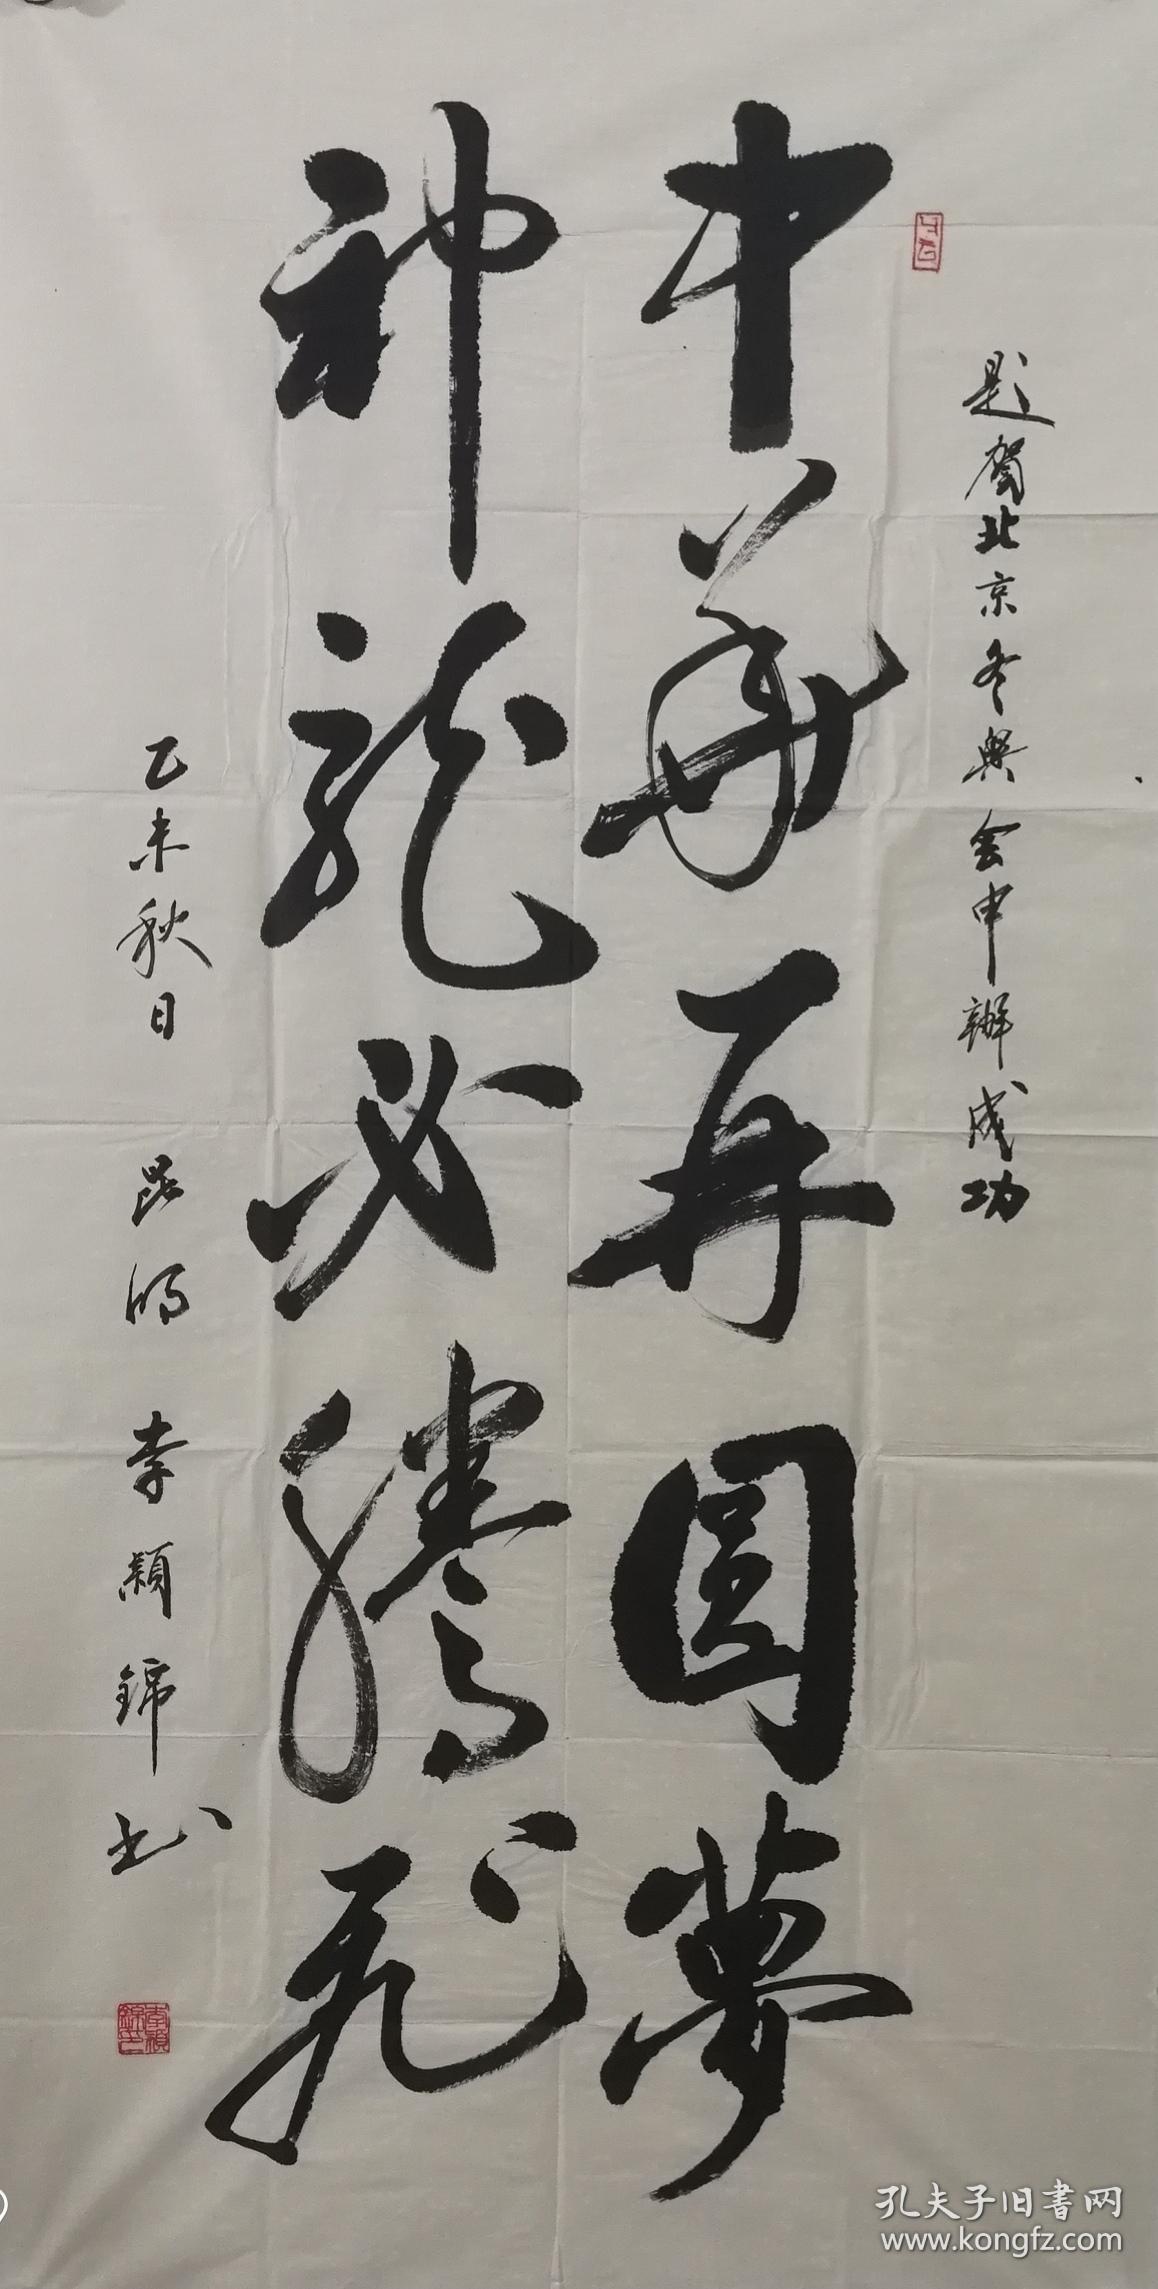 题贺北京冬奥会申辦成功
中華再圆夢
神龍必騰飛
乙未秋日 昆明 李颖锦书
孔夫子旧書网
www.kongfz.com